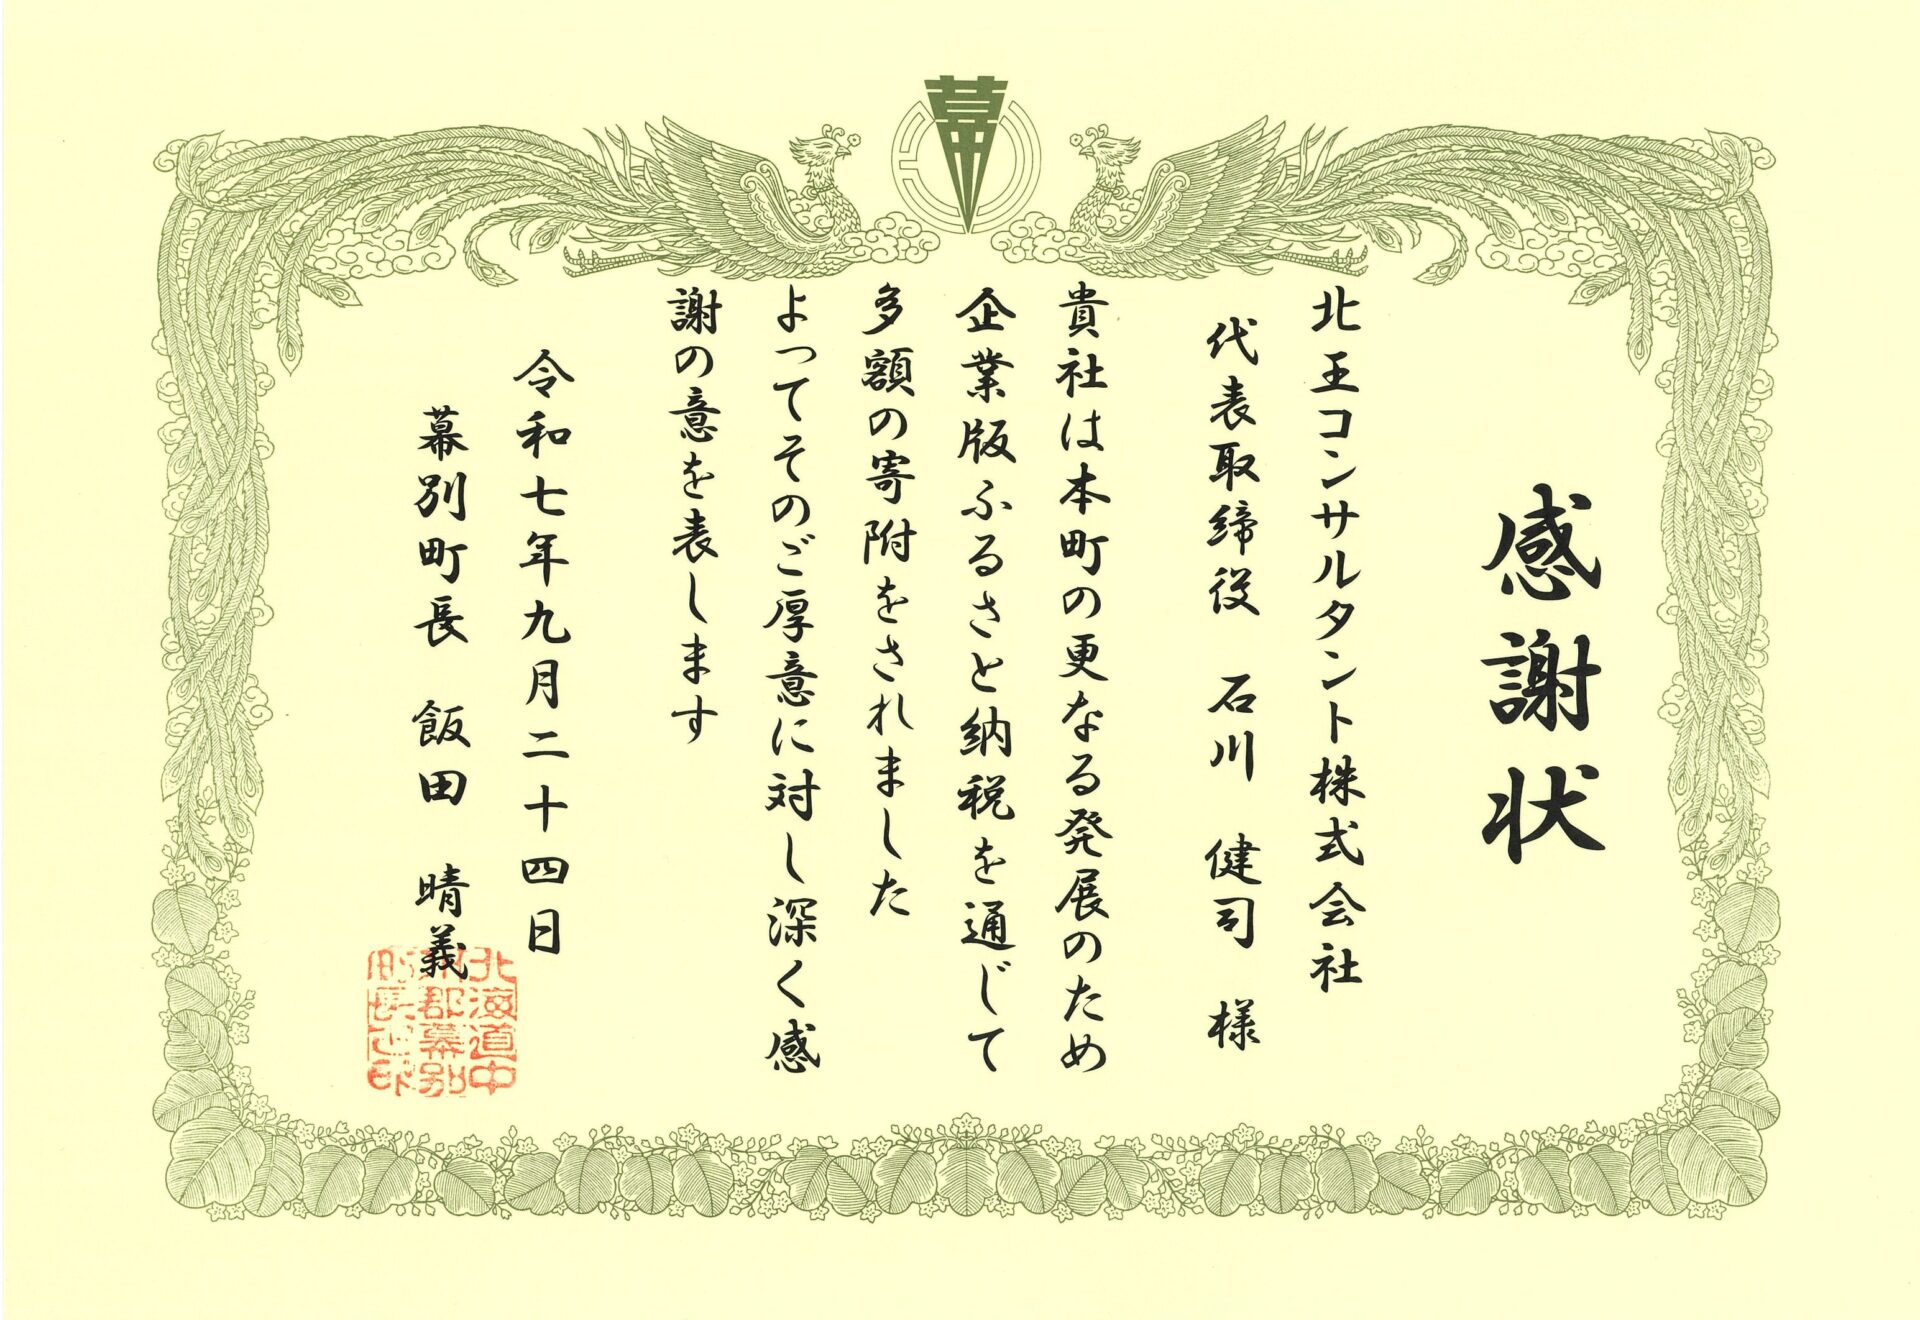 幕
感謝状
北王コンサルタント株式会社
代表取締役 石川 健司 様
貴社は本町の更なる発展のため
企業版ふるさと納税を通じて
多額の寄附をされました
よってそのご厚意に対し深く感
謝の意を表します
令和七年九月二十四日
幕別町長 飯田 晴義
北海道中
川郡幕別
町長之印